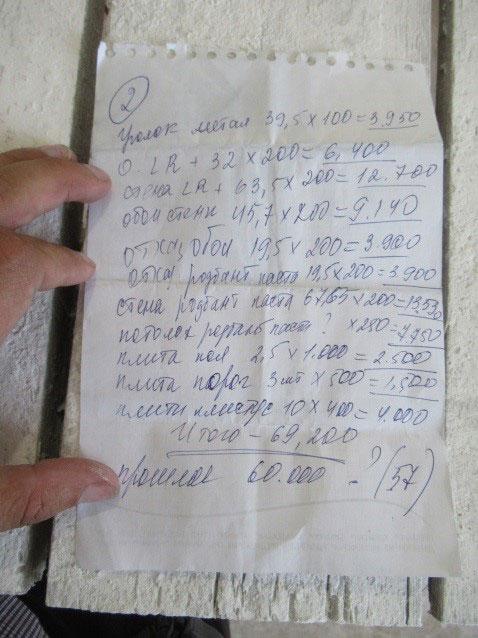 2
уголок метал 39,5 х 100 = 3.950
О. LR + 32 х 200 = 6,400
стена LR + 63,5 х 200 = 12.700
обои стени 45,7 х 200 = 9.140
откац обои 19,5 х 200 = 3.900
откац родбант паста 19,5 х 200 = 3.900
стена родбант паста х 200 =
потолок паст ? х 250 = 7,750
плита пол 2,5 х 1.000 = 2.500
плита порог 3шт х 500 = 1,500
плити плинтус 10 х 400 = 4.000
Итого - 69,200
60.000 - ? (57)